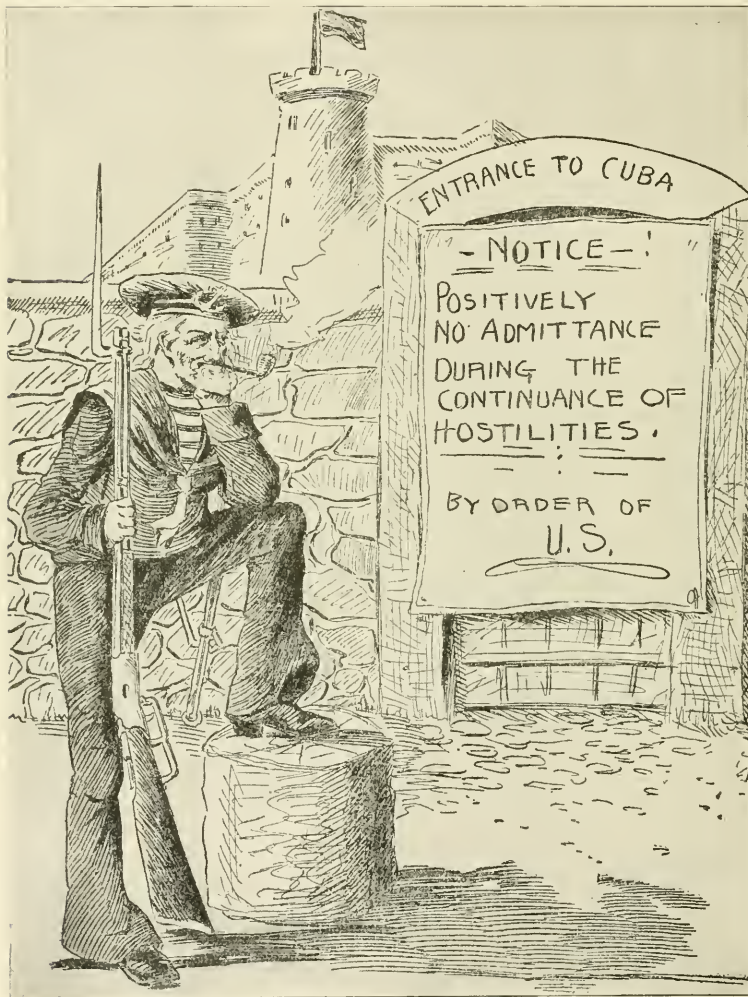 ENTRANCE TO CUBA
- NOTICE - !
POSITIVELY
NO ADMITTANCE
DURING THE
CONTINUANCE OF
HOSTILITIES.
BY ORDER OF
U.S.